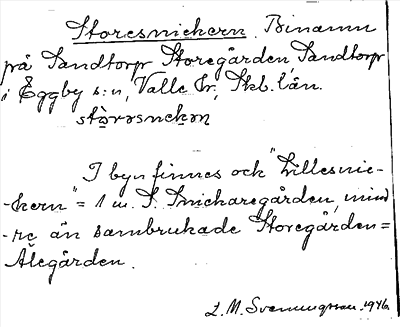 Storesnickern. Binamn
på Sandtorp Storegården, Sandtorp
i Eggby s:n, Valle hr, Skb. län.
I byn finnes ock "Lillesnic-
-kern" = 1 m. S. Snickaregården, mind
-re än sambrukade Storegården =
Ålegården.
L. M. Svenungsson. 1946.